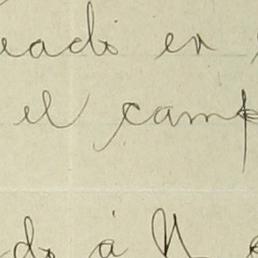 eado en
el camp
do á N